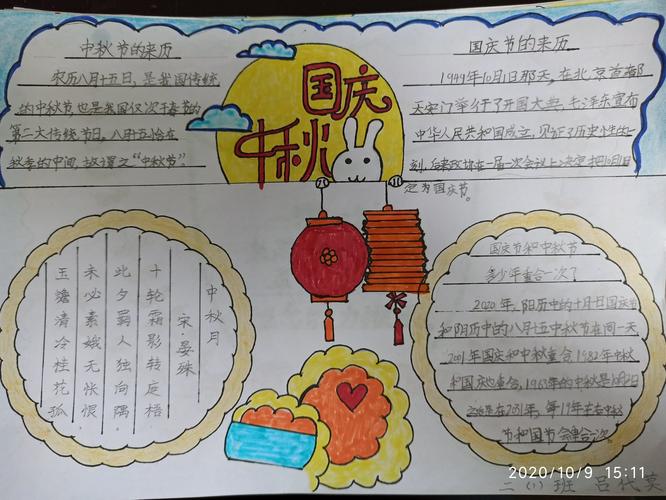 中秋节的来历
农历八月十五日，是我国传统
的中秋节，也是我国仅次于春节的
第二大传统节日。八月十五恰在
秋季的中间，故谓之“中秋节”。
国庆
中秋
国庆节的来历
1949年10月1日那天，在北京首都
天安门举行了开国大典，毛泽东宣布
中华人民共和国成立，见证了历史性的一
刻，后来政协在一届一次会议上决定把10月1日
定为国庆节。
中秋月
宋·晏殊
十轮霜影转庭梧
此夕羁人独向隅
未必素娥无怅恨
玉蟾清冷桂花孤
国庆节和中秋节
多少年重合一次了
2020年，阳历中的十月一日国庆节
和阴历中的八月十五中秋节在同一天
2001年国庆和中秋重合，1982年中秋
和国庆重合，1963年的中秋是10月2日
每19年左右中秋
节和国节会重合一次。
2020/10/9 15:11
二（1）班 吕